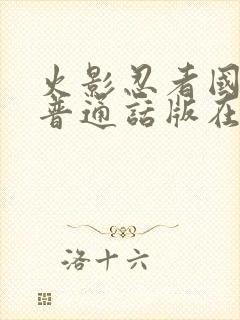 火影忍者國
普通話版在
洛十六